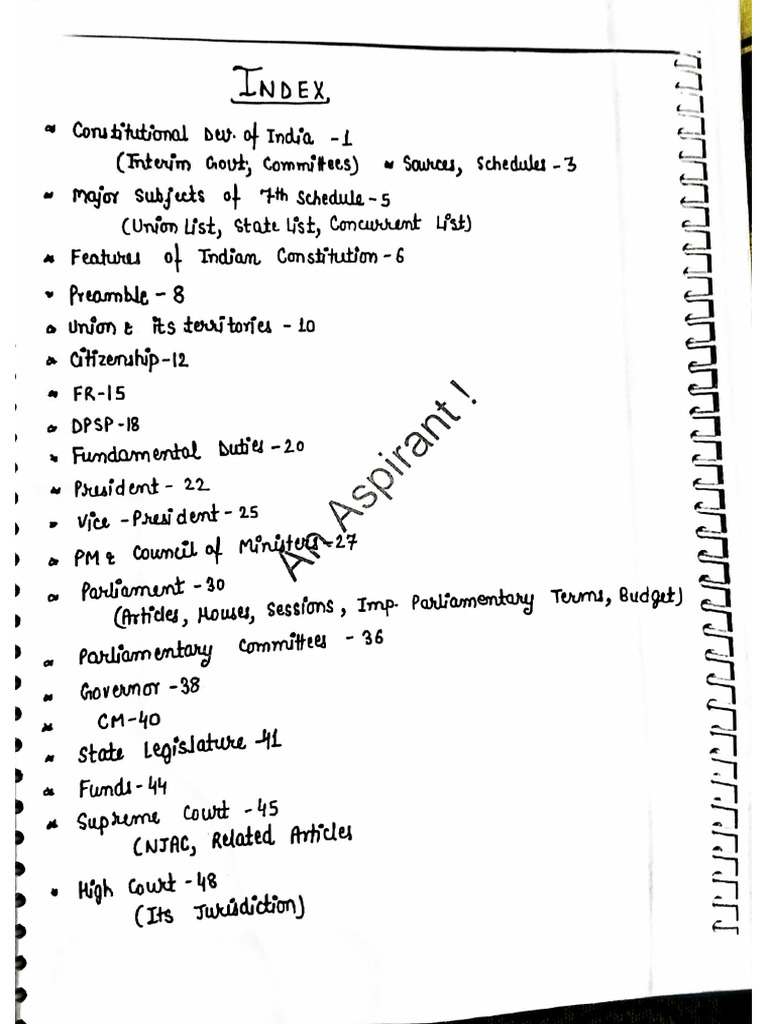 INDEX
Constitutional Dev. of India - 1
(Interim Govt, Committees) Sources, Schedules - 3
Major Subjects of 7th Schedule - 5
(Union List, State List, Concurrent List)
Features of Indian Constitution - 6
Preamble - 8
Union & its territories - 10
Citizenship - 12
FR - 15
DPSP - 18
Fundamental Duties - 20
President - 22
Vice - President - 25
PM & Council of Ministers - 27
Parliament - 30
(Articles, Houses, Sessions, Imp. Parliamentary Terms, Budget)
Parliamentary Committees - 36
Governor - 38
CM - 40
State Legislature - 41
Funds - 44
Supreme Court - 45
(NJAC, Related Articles
High Court - 48
(Its Jurisdiction)
An Aspirant !